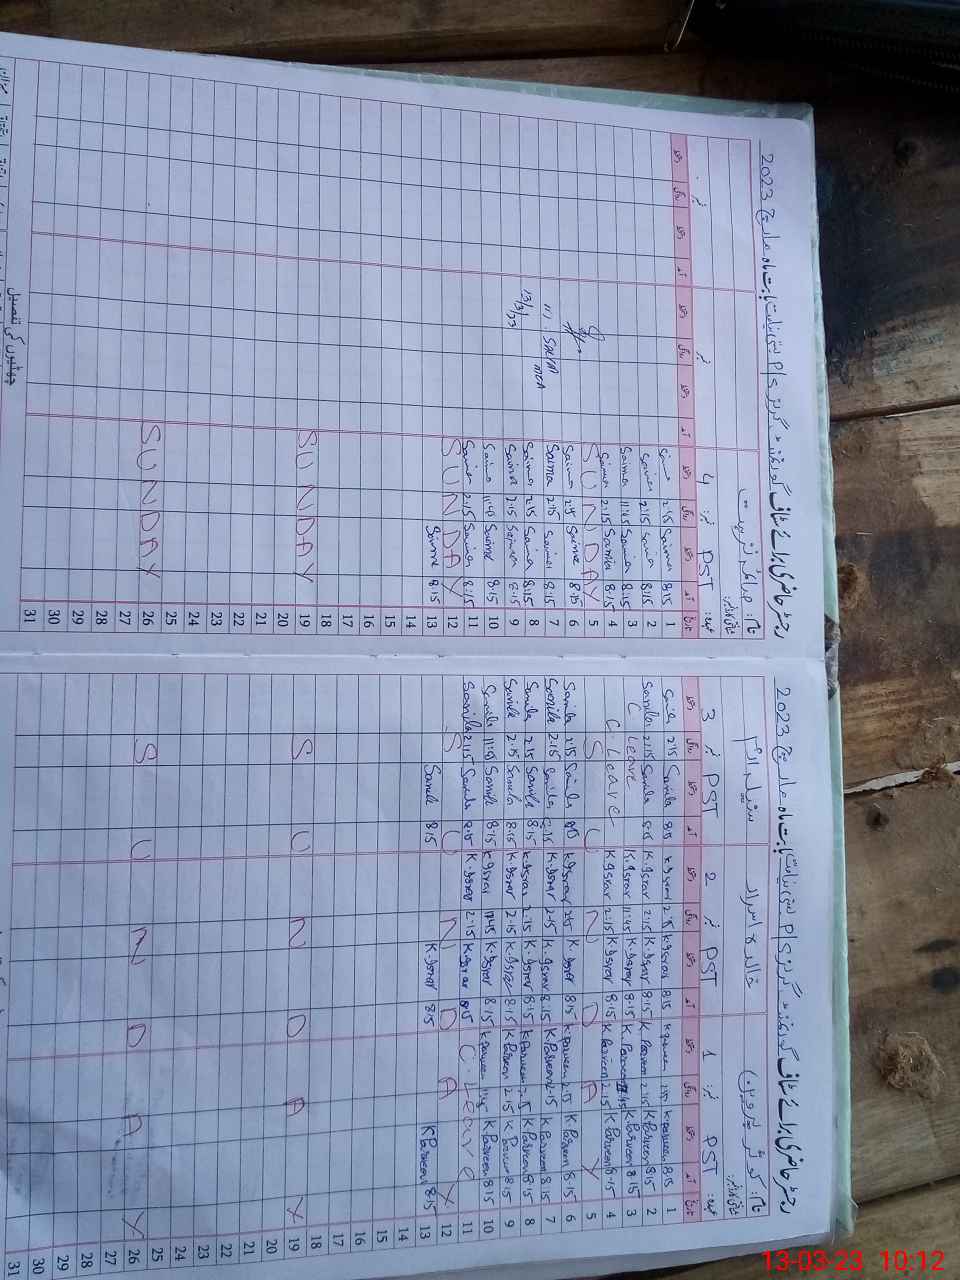 رجسٹر حاضری برائے سٹاف گورنمنٹ گرلز P/S بابت ماہ مارچ 2023
نام: کوثر پروین
خالدہ اسرار
سنیلہ
PST نمبر 1
PST نمبر 2
PST نمبر 3
تاریخ آمد دستخط روانگی دستخط آمد دستخط روانگی دستخط آمد دستخط روانگی دستخط
1 8:15 K.Parveen 2:15 K.Parveen 8:15 K.Israr 2:15 K.Israr 8:15 Sanila 2:15 Sanila
2 8:15 K.Parveen 2:15 K.Parveen 8:15 K.Israr 2:15 K.Israr 8:15 Sanila 2:15 Sanila
3 8:15 K.Parveen 11:45 K.Parveen 8:15 K.Israr 11:45 K.Israr C Leave
4 8:15 K.Parveen 2:15 K.Parveen 8:15 K.Israr 2:15 K.Israr C.Leave
5 SUNDAY
6 8:15 K.Parveen 2:15 K.Parveen 8:15 K.Israr 2:15 K.Israr Sanila 2:15 Sanila
7 8:15 K.Parveen 2:15 K.Parveen 8:15 K.Israr 2:15 K.Israr 8:15 Sanila 2:15 Sanila
8 8:15 K.Parveen 2:15 K.Parveen 8:15 K.Israr 2:15 K.Israr 8:15 Sanila 2:15 Sanila
9 8:15 K.Parveen 2:15 K.Parveen 8:15 K.Israr 2:15 K.Israr 8:15 Sanila 2:15 Sanila
10 8:15 K.Parveen 11:45 K.Parveen 8:15 K.Israr 11:45 K.Israr 8:15 Sanila 11:45 Sanila
11 C.Leave 8:15 K.Israr 2:15 K.Israr 8:15 Sanila 2:15 Sanila
12 SUNDAY
13 8:15 K Parveen 8:15 K.Israr 8:15 Sanila
14
15
16
17
18
19 SUNDAY
20
21
22
23
24
25
26 SUNDAY
27
28
29
30
31
رجسٹر حاضری برائے سٹاف گورنمنٹ گرلز P/S بابت ماہ مارچ 2023
نام: صائمہ
PST نمبر 4
تاریخ آمد دستخط روانگی دستخط
1 8:15 Saima 2:15 Saima
2 8:15 Saima 2:15 Saima
3 8:15 Saima 11:45 Saima
4 8:15 Saima 2:15 Saima
5 SUNDAY
6 8:15 Saima 2:15 Saima
7 8:15 Saima 2:15 Saima
8 8:15 Saima 2:15 Saima
9 8:15 Saima 2:15 Saima
10 8:15 Saima 11:45 Saima
11 8:15 Saima 2:15 Saima
12 SUNDAY
13 8:15 Saima
14
15
16
17
18
19 SUNDAY
20
21
22
23
24
25
26 SUNDAY
27
28
29
30
31
M. SALIM
MEA
13/3/23
چھٹیوں کی تفصیل
13-03-23 10:12